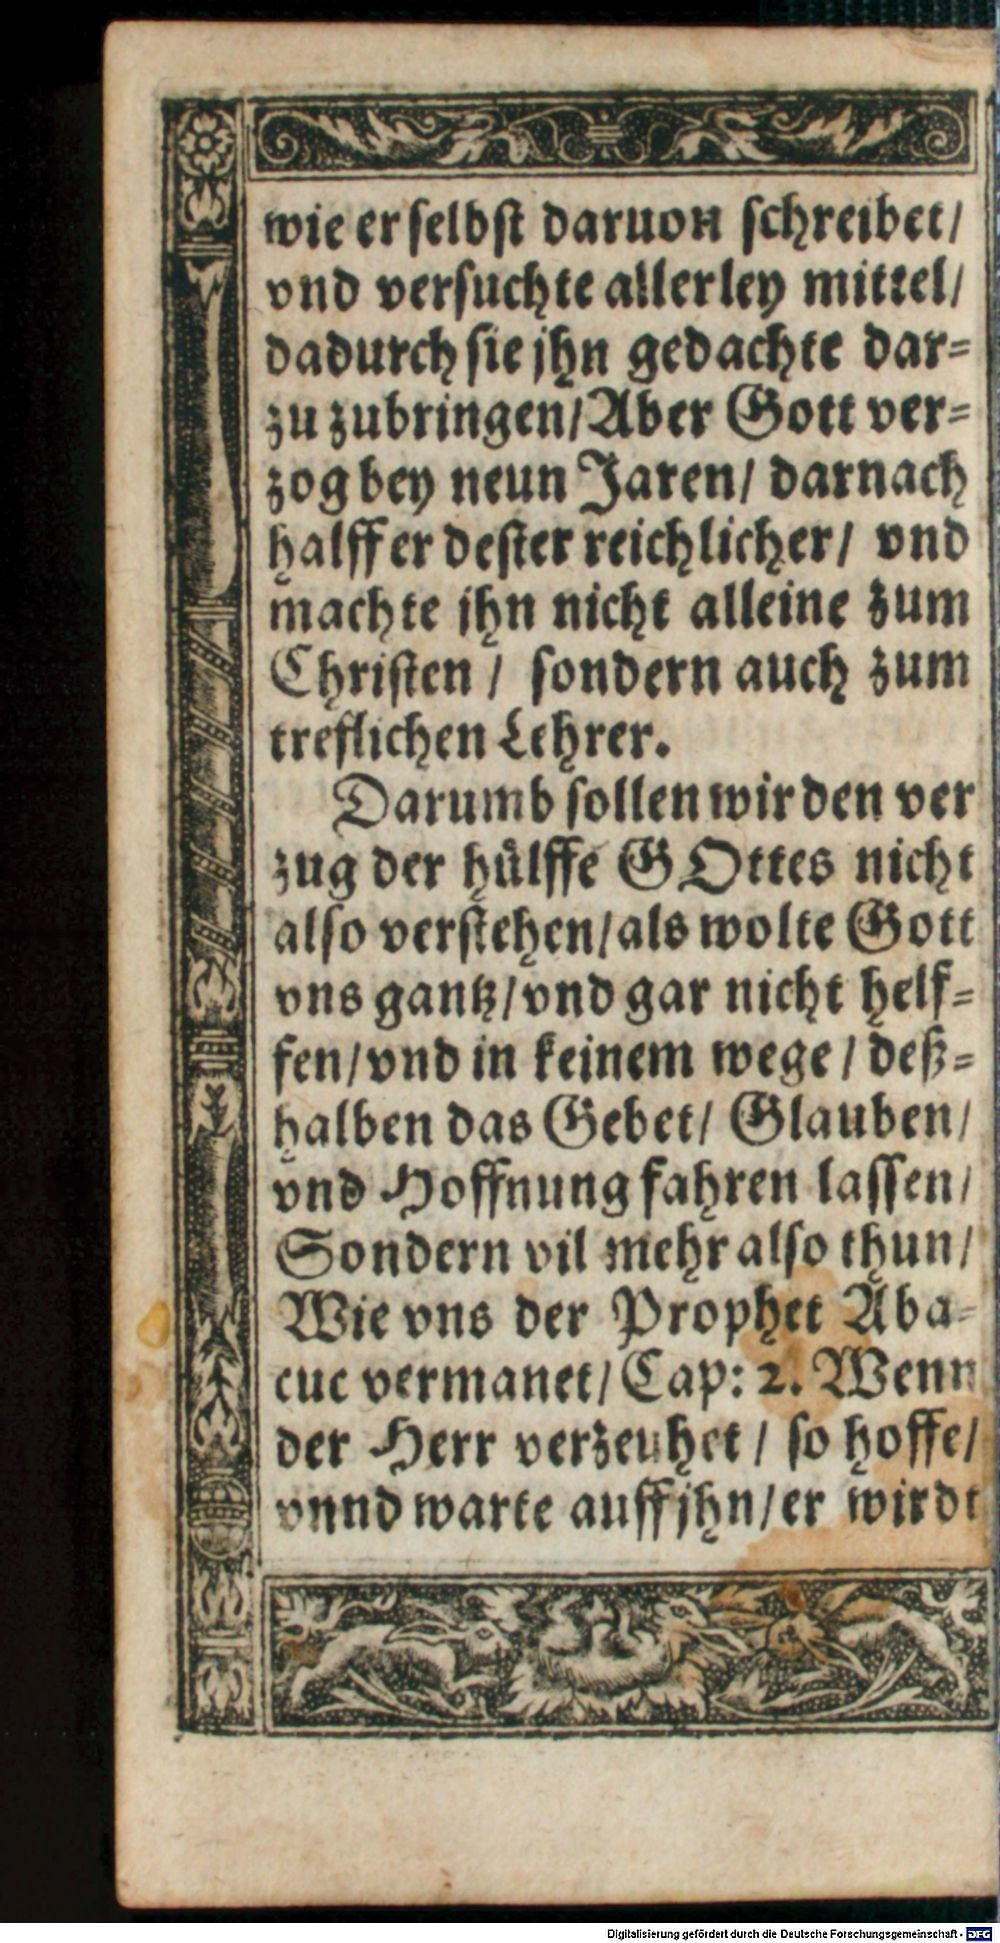 wie er selbst daruon schreibet/
vnd versuchte allerley mittel/
dadurch sie jhn gedachte dar-
zu zubringen/Aber Gott ver-
zog bey neun Jaren/ darnach
halff er dester reichlicher/ vnd
machte jhn nicht alleine zum
Christen / sondern auch zum
treflichen Lehrer.
Darumb sollen wir den ver
zug der hülffe GOttes nicht
also verstehen/als wolte Gott
vns gantz/vnd gar nicht helf-
fen/vnd in keinem wege / deß-
halben das Gebet/ Glauben/
vnd Hoffnung fahren lassen/
Sondern vil mehr also thun/
Wie vns der Prophet Aba-
cuc vermanet/Cap: 2. Wenn
der Herr verzeuhet / so hoffe/
vnnd warte auff jhn/er wirdt
Digitalisierung gefördert durch die Deutsche Forschungsgemeinschaft - DFG